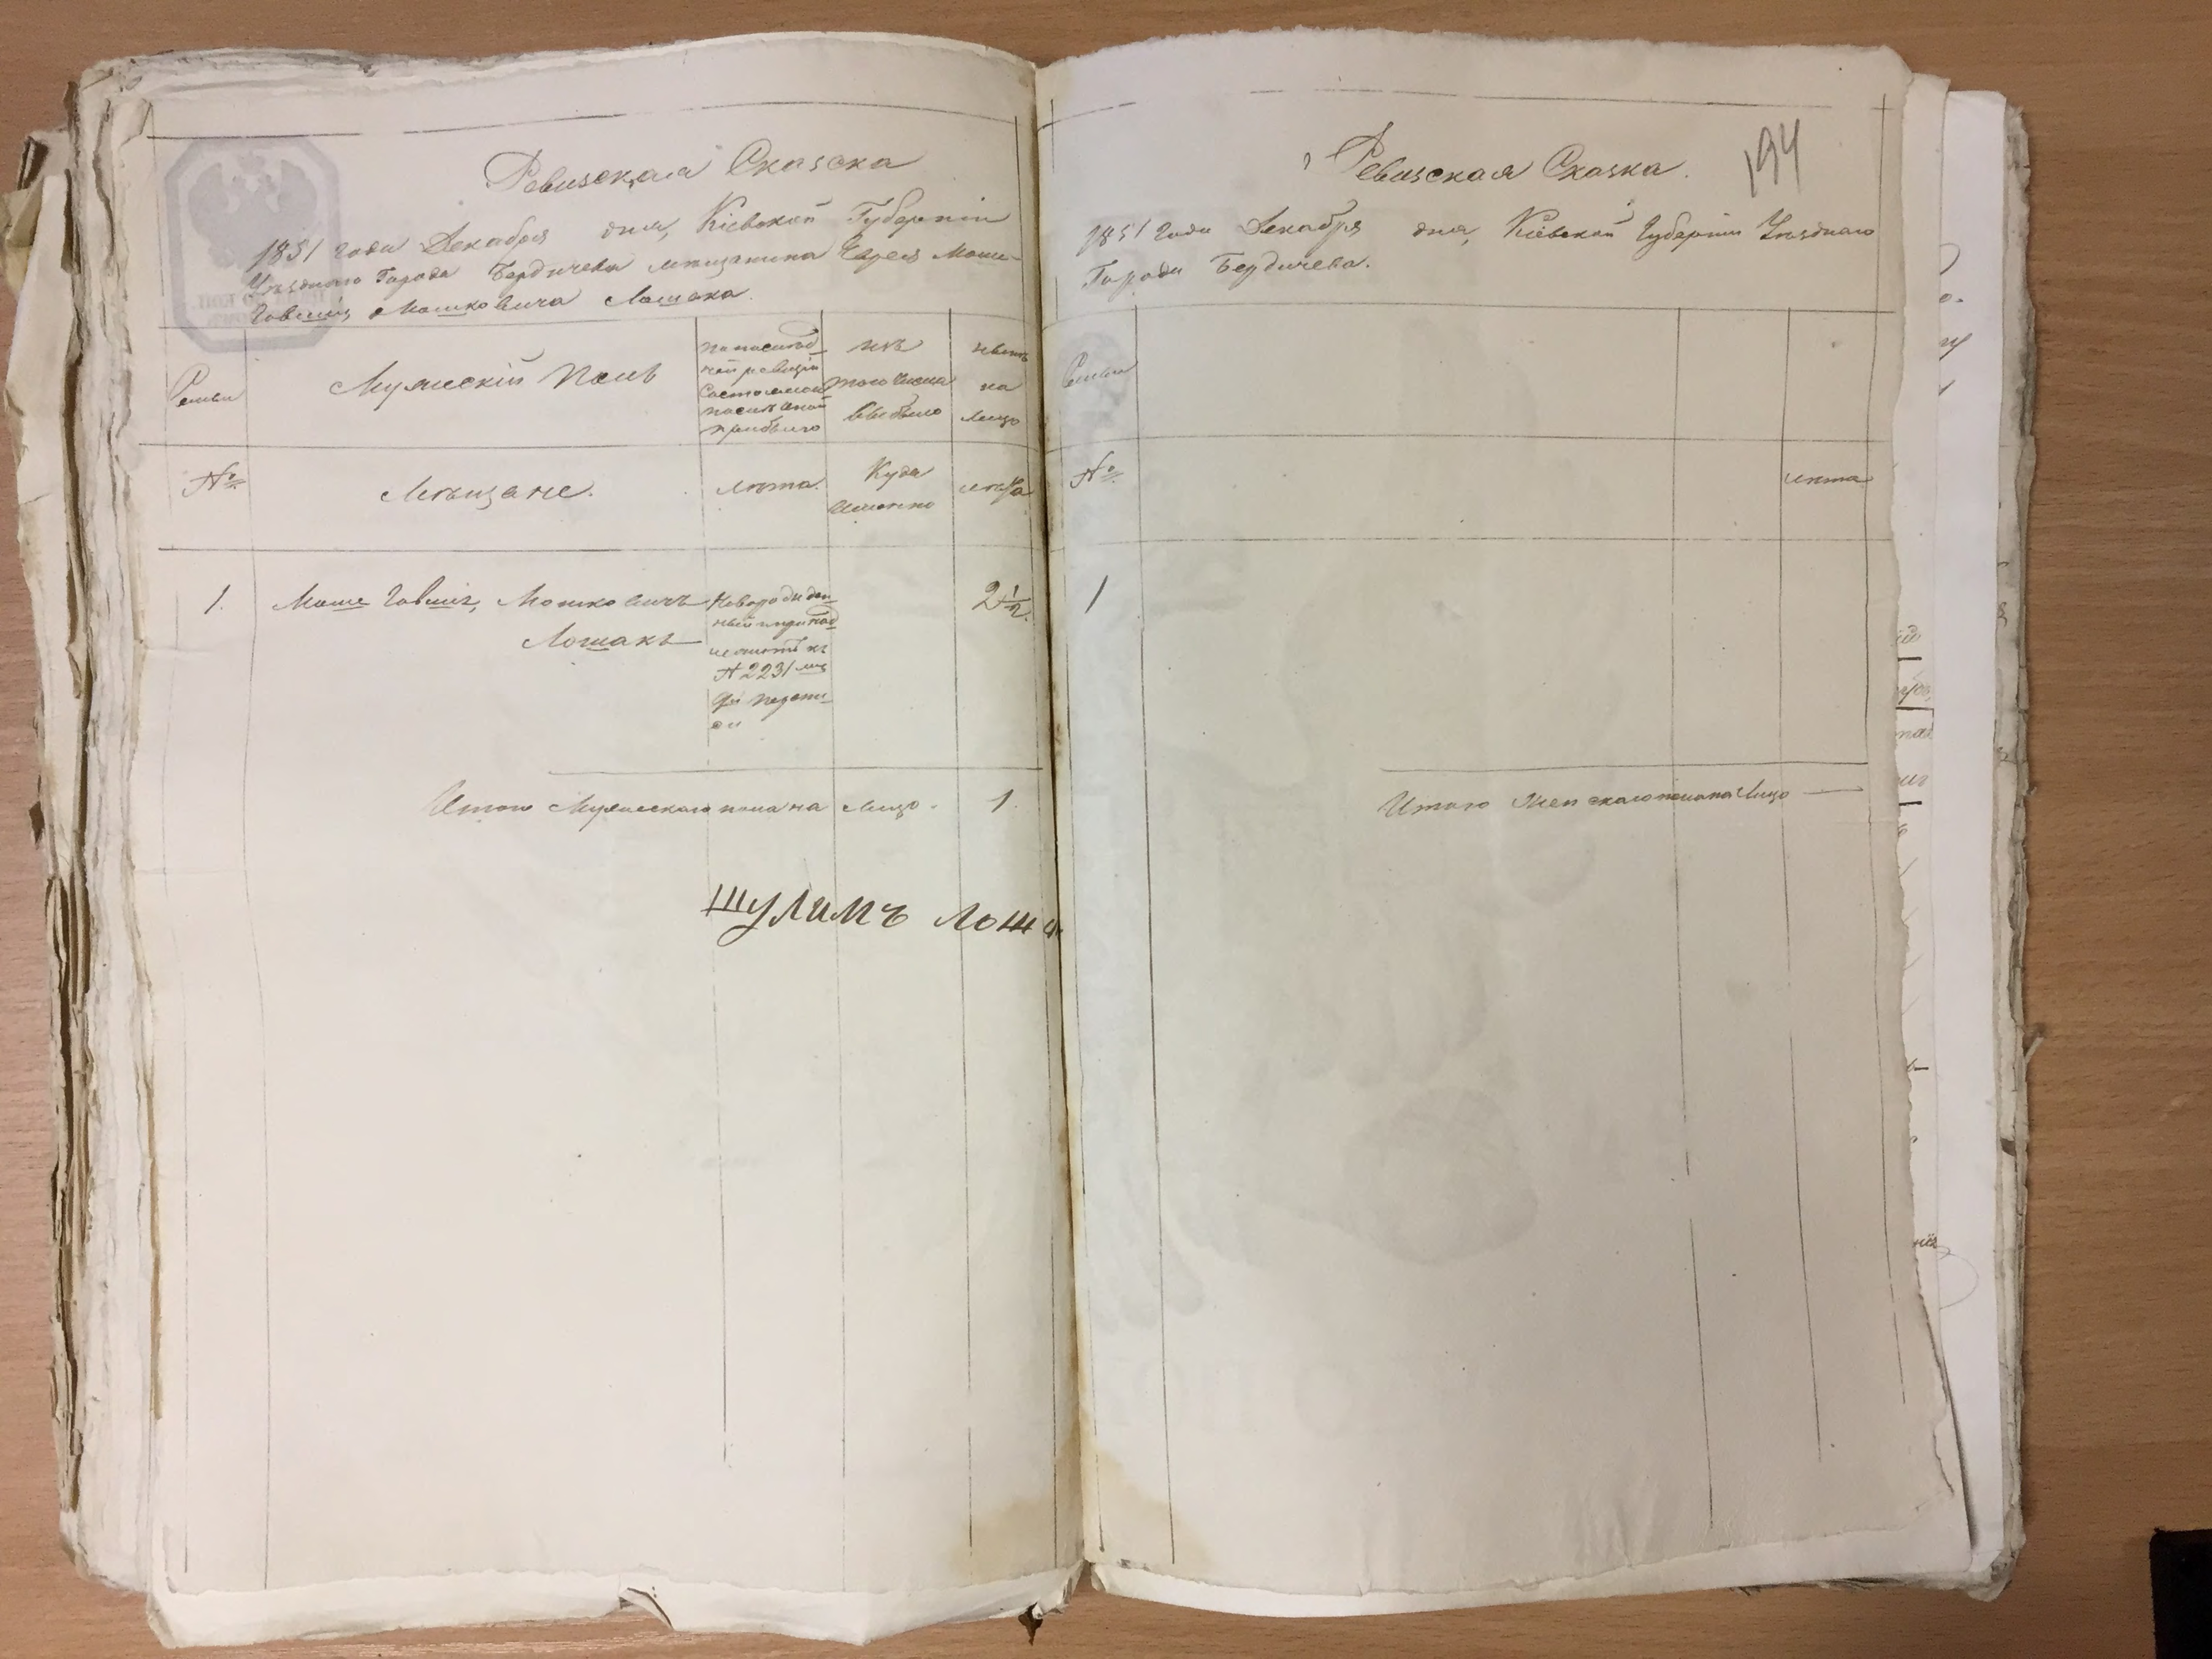 Ревизская Сказка
1851 года Декабря дня, Кіевской Губерніи
Уезднаго Города Бердичева мещанина Еврея Моше-
Мошковича Лошака.
Семьи
Мужескій Полъ
По последней ревизіи состояло и после оной прибыло
изъ того числа выбыло
ныне на лицо
№
Мещане.
лета.
Куда именно
лета
1.
Моше Мошковичъ
Лошакъ
Новорожден-
ный и принад-
лежитъ къ
№ 2231
2 1/2
Итого Мужескаго пола на лицо. 1.
шулимъ лоша
194
Ревизская Сказка.
1851 года Декабря дня, Кіевской Губерніи Уезднаго
Города Бердичева.
Семьи
№
лета
1
Итого Женскаго пола на Лицо —